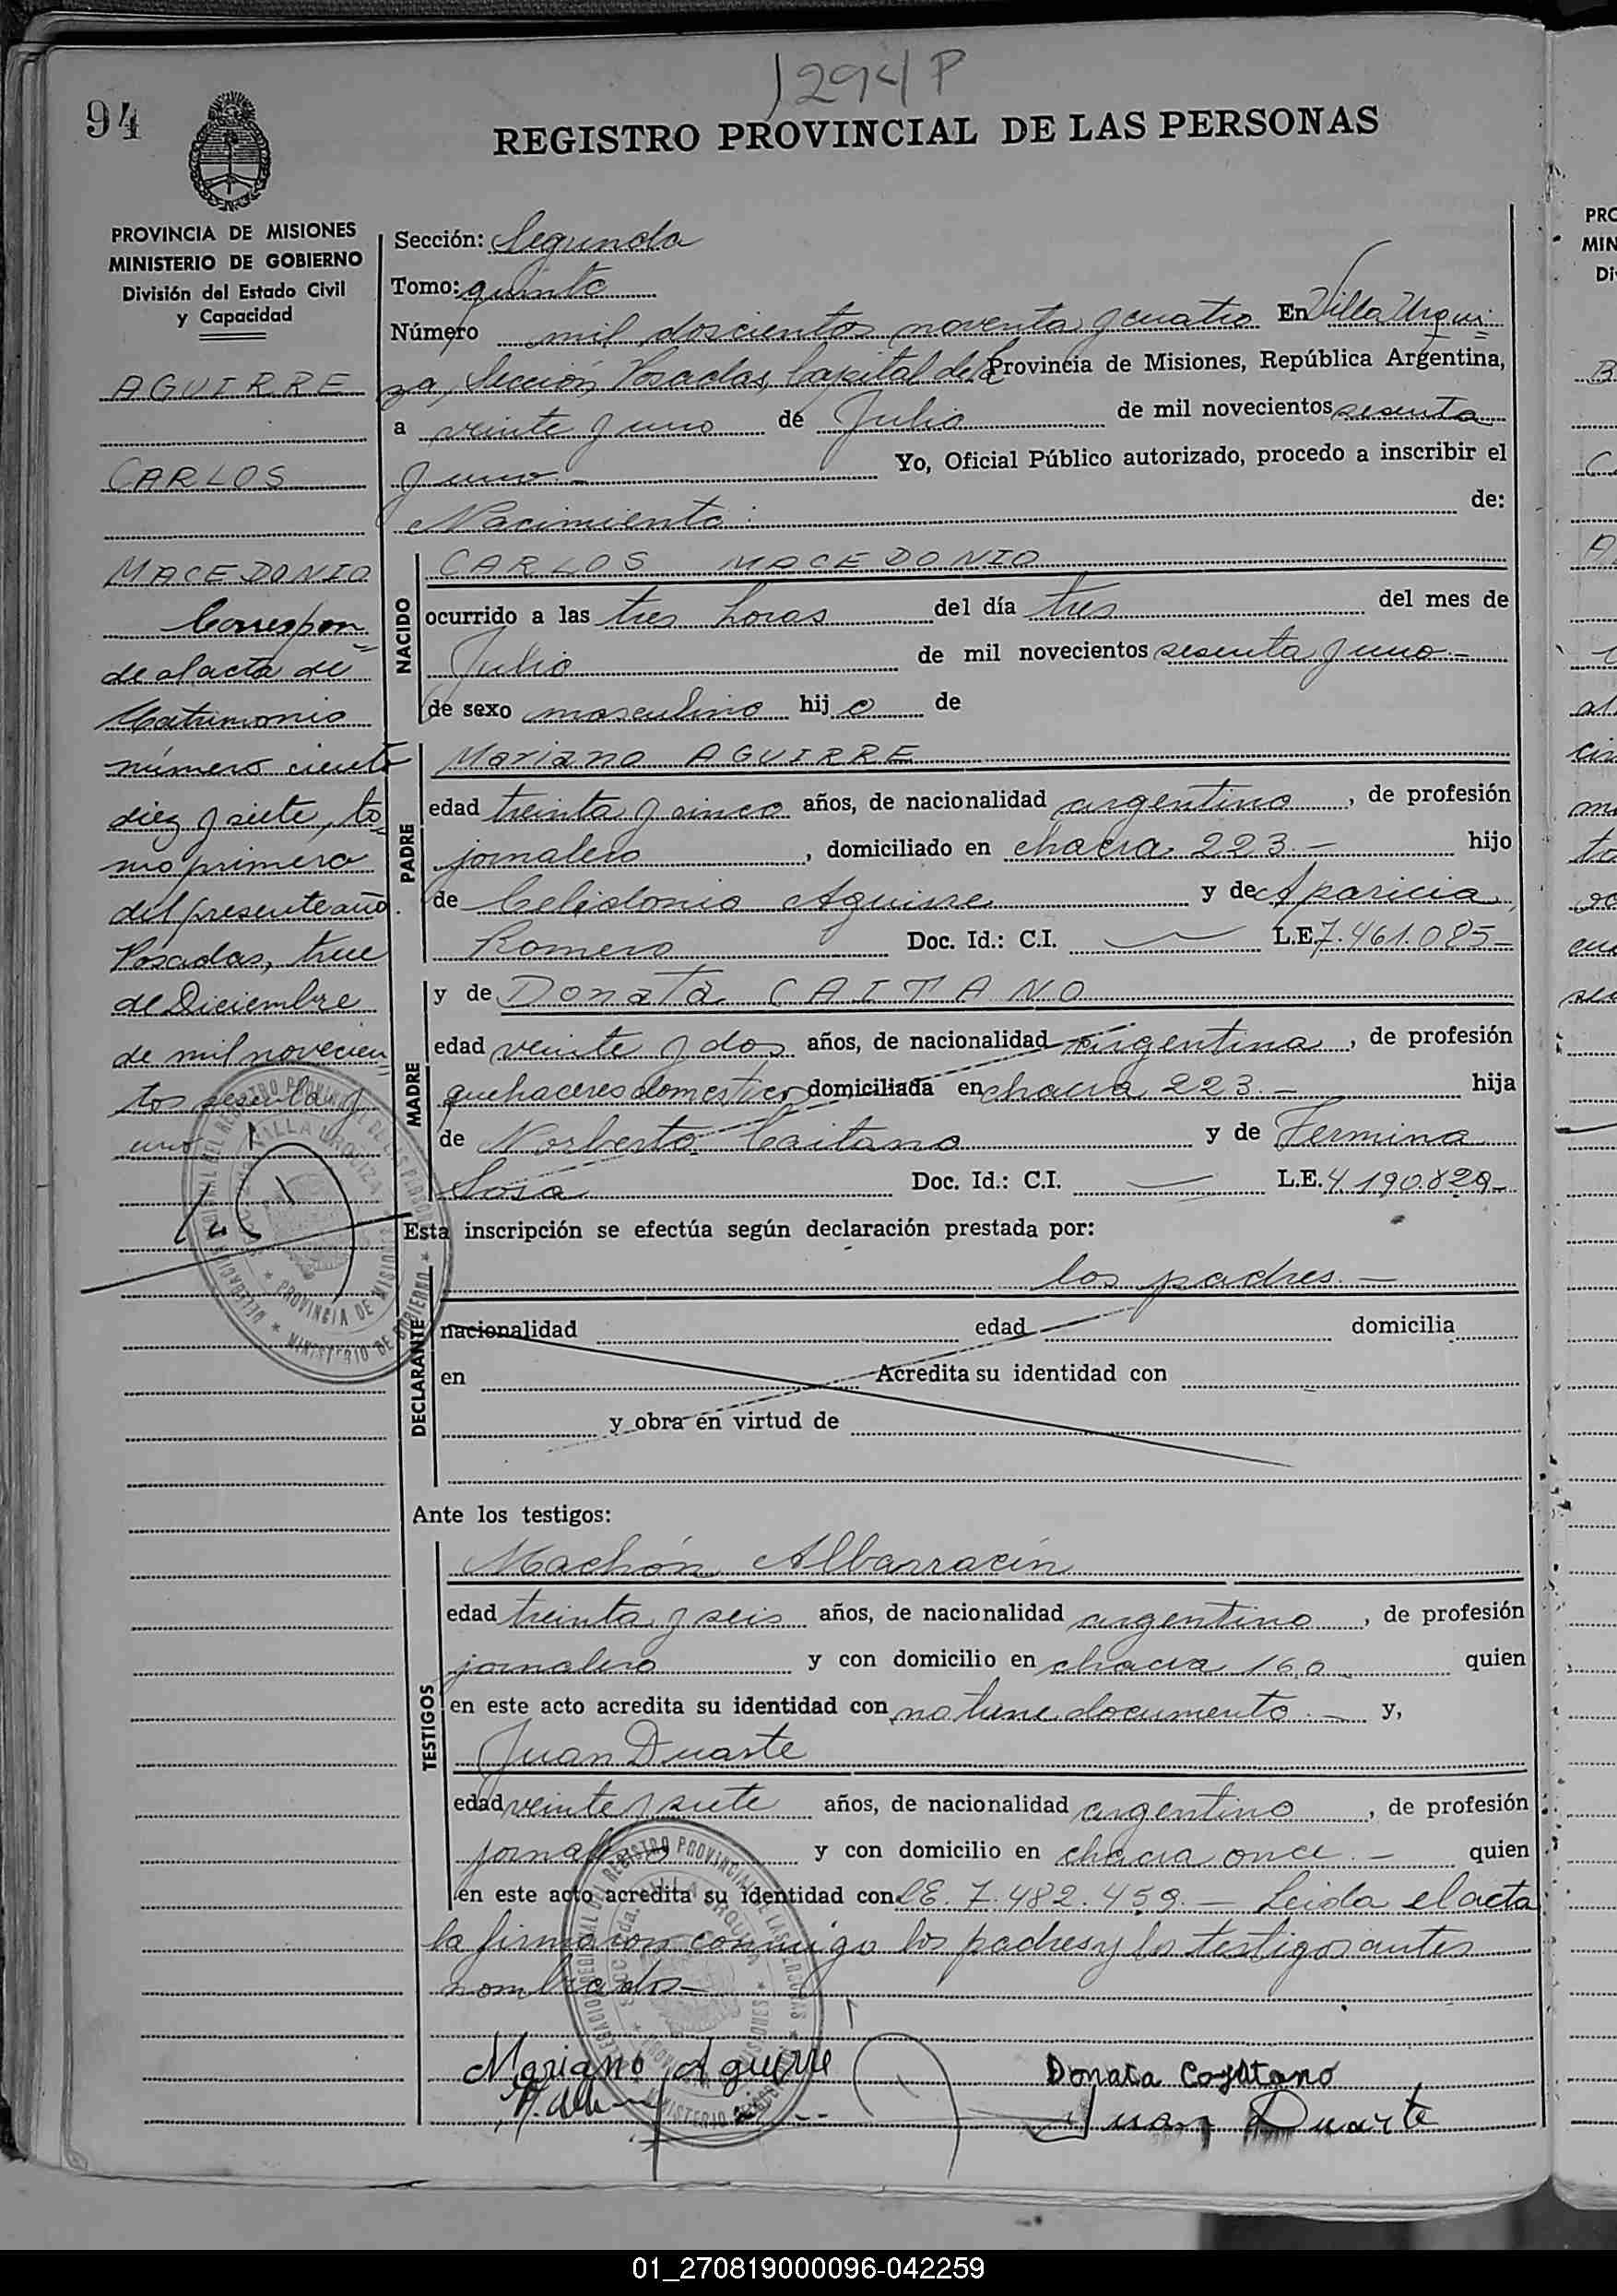 1294 P
94
REGISTRO PROVINCIAL DE LAS PERSONAS
PROVINCIA DE MISIONES
MINISTERIO DE GOBIERNO
División del Estado Civil
y Capacidad
AGUIRRE
CARLOS
MACEDONIO
Correspon=
de al acta de
Matrimonio
número ciento
diez y siete, to=
mo primero
del presente año.
Posadas, trece
de Diciembre
de mil novecien=
tos sesenta y
uno
Sección: Segunda
Tomo: quinto
Número mil doscientos noventa y cuatro En Villa Urqui=
za, Sección Posadas, Capital de la Provincia de Misiones, República Argentina,
a veinte y uno de Julio de mil novecientos sesenta
y uno.- Yo, Oficial Público autorizado, procedo a inscribir el
Nacimiento: de:
NACIDO
CARLOS MACEDONIO
ocurrido a las tres horas del día tres del mes de
Julio de mil novecientos sesenta y uno.-
de sexo masculino hijo de
PADRE
Mariano AGUIRRE
edad treinta y cinco años, de nacionalidad argentino, de profesión
jornalero, domiciliado en chacra 223.- hijo
de Celidonio Aguirre y de Aparicia
Romero Doc. Id.: C.I. — L.E. 7.461.085-
MADRE
y de Donata CAITANO
edad veinte y dos años, de nacionalidad argentina, de profesión
quehaceres domesticos domiciliada en chacra 223.- hija
de Norberto Caitano y de Fermina
Sosa Doc. Id.: C.I. — L.E. 4.190.829-
Esta inscripción se efectúa según declaración prestada por:
DECLARANTE
los padres.-
nacionalidad edad domicilia
en Acredita su identidad con
y obra en virtud de
Ante los testigos:
TESTIGOS
Machón Albarracín
edad treinta y seis años, de nacionalidad argentino, de profesión
jornalero y con domicilio en chacra 160 quien
en este acto acredita su identidad con no tiene documento.- y,
Juan Duarte
edad veinte y siete años, de nacionalidad argentino, de profesión
jornalero y con domicilio en chacra once.- quien
en este acto acredita su identidad con LE. 7.482.459.- Leida el acta
la firmaron conmigo los padres y los testigos antes
nombrados-
Mariano Aguirre
Donata Cayitano
Juan Duarte
01_270819000096-042259